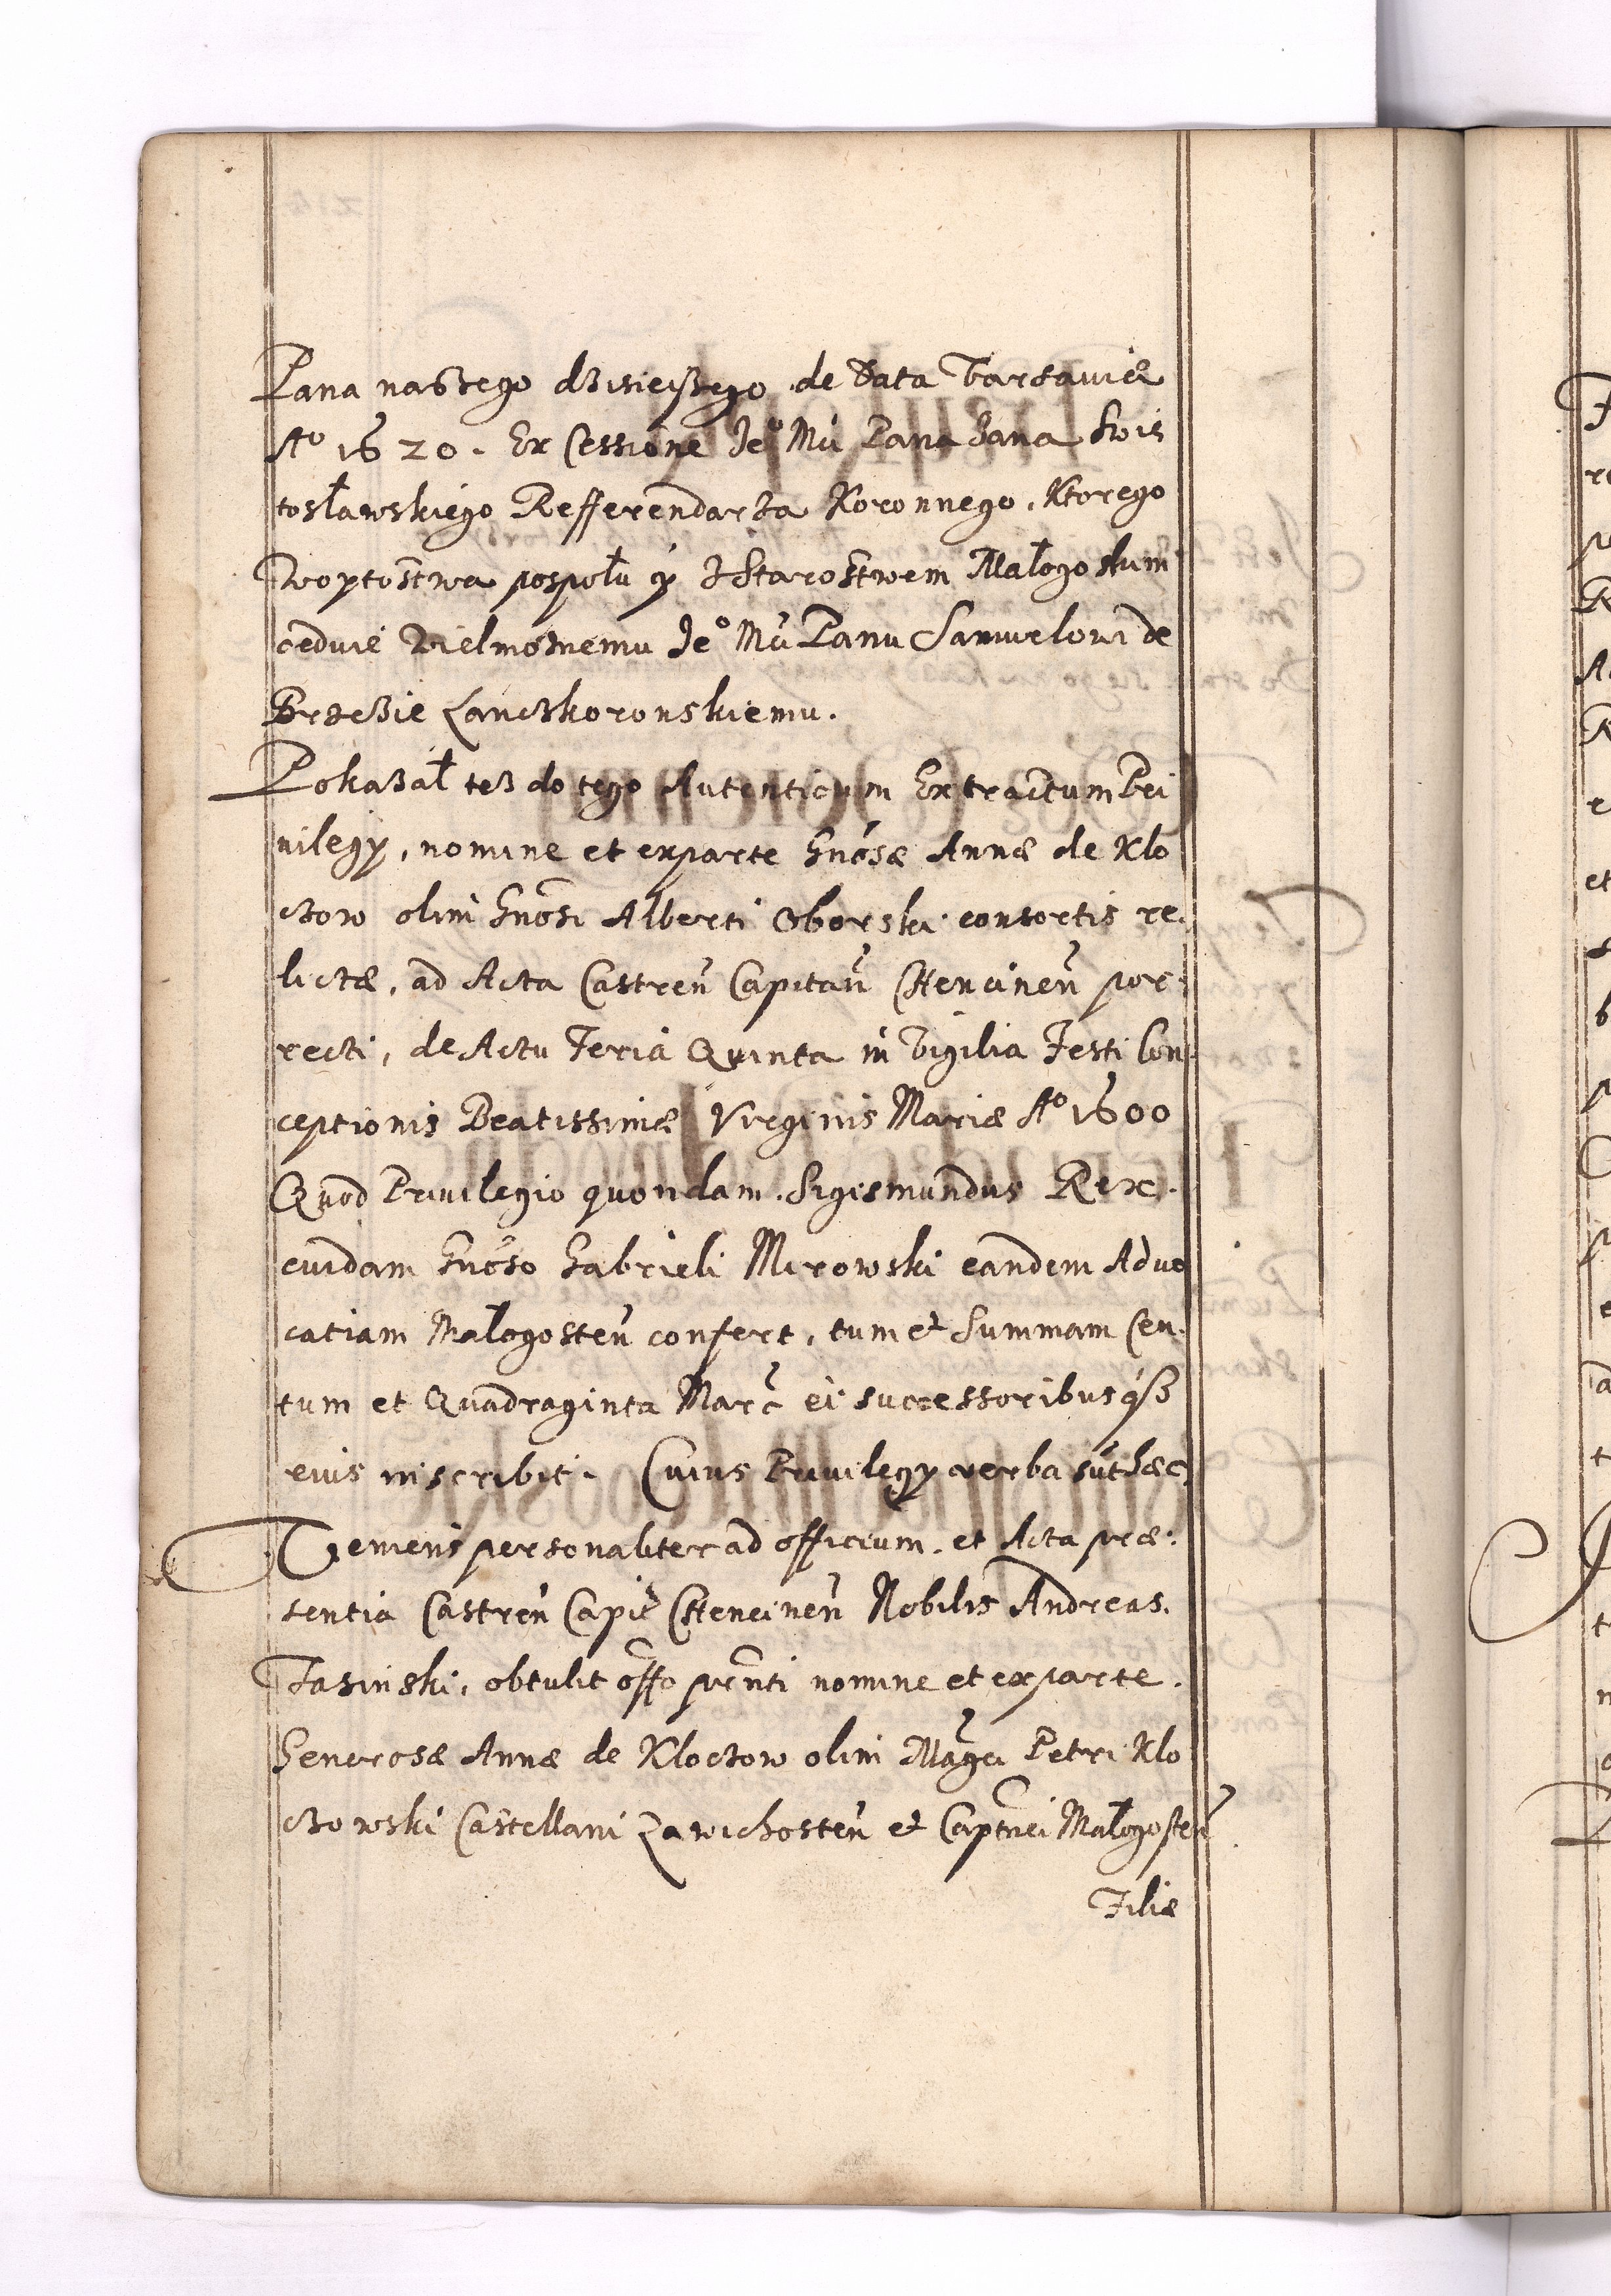 Pana naszego dzisieiszego de Data Varsaviæ
Aº 1620. Ex Cessione Jeº Mći Pana Jana Swię
tosławskiego Refferendarza Koronnego, Ktorego
Woytostwa pospołu y z Starostwem Małogoskim
ceduie Wielmoznemu Jeº Mći Panu Samuelowi de
Brzezie Lanczkoronskiemu.
Pokazał tez do tego Autenticum Extractum Pri
uilegy, nomine et ex parte Gnōsæ Annæ de Klo
czow olim Gnōsi Alberti Oborski consortis re
lictæ, ad Acta Castreñ Capitañ Chencineñ por:
recti, de Actu Feria Quinta in Vigilia Festi Con
ceptionis Beatissimæ Virginis Mariæ Aº 1600
Quod Priuilegio quondam Sigismundus Rex.
cuidam Gnōso Gabrieli Mirowski eandem Aduo
catiam Małogosteñ confert, tum et Summam Cen
tum et Quadraginta Marc̃ ei successoribus q̃s
eius inscribit. Cuius Priuilegy verba sũt hæc
Veniens personaliter ad officium et Acta præ:
sentia Castreñ Capit̃ Chencineñ Nobilis Andreas.
Jasinski, obtulit off̃o pñti nomine et ex parte.
Generosæ Annæ de Kloczow olim Mag̃ci Petri Klo
czowski Castellani Zawichosteñ et Captñei Małogosteñ
Filiæ